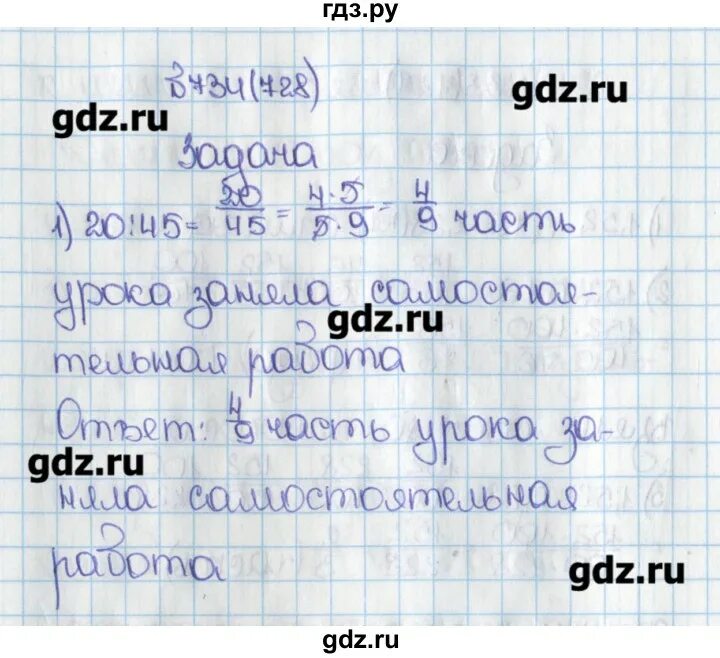 гдз.ру
В734(728)
gdz.ru
gdz.ru
Задача
1) 20:45= 20/45 = 4·5/5·9 = 4/9 часть
урока заняла самостоя-
gdz.ru
тельная работа
Ответ: 4/9 часть урока за-
gdz.ru
няла самостоятельная
работа
gdz.ru
gdz.ru